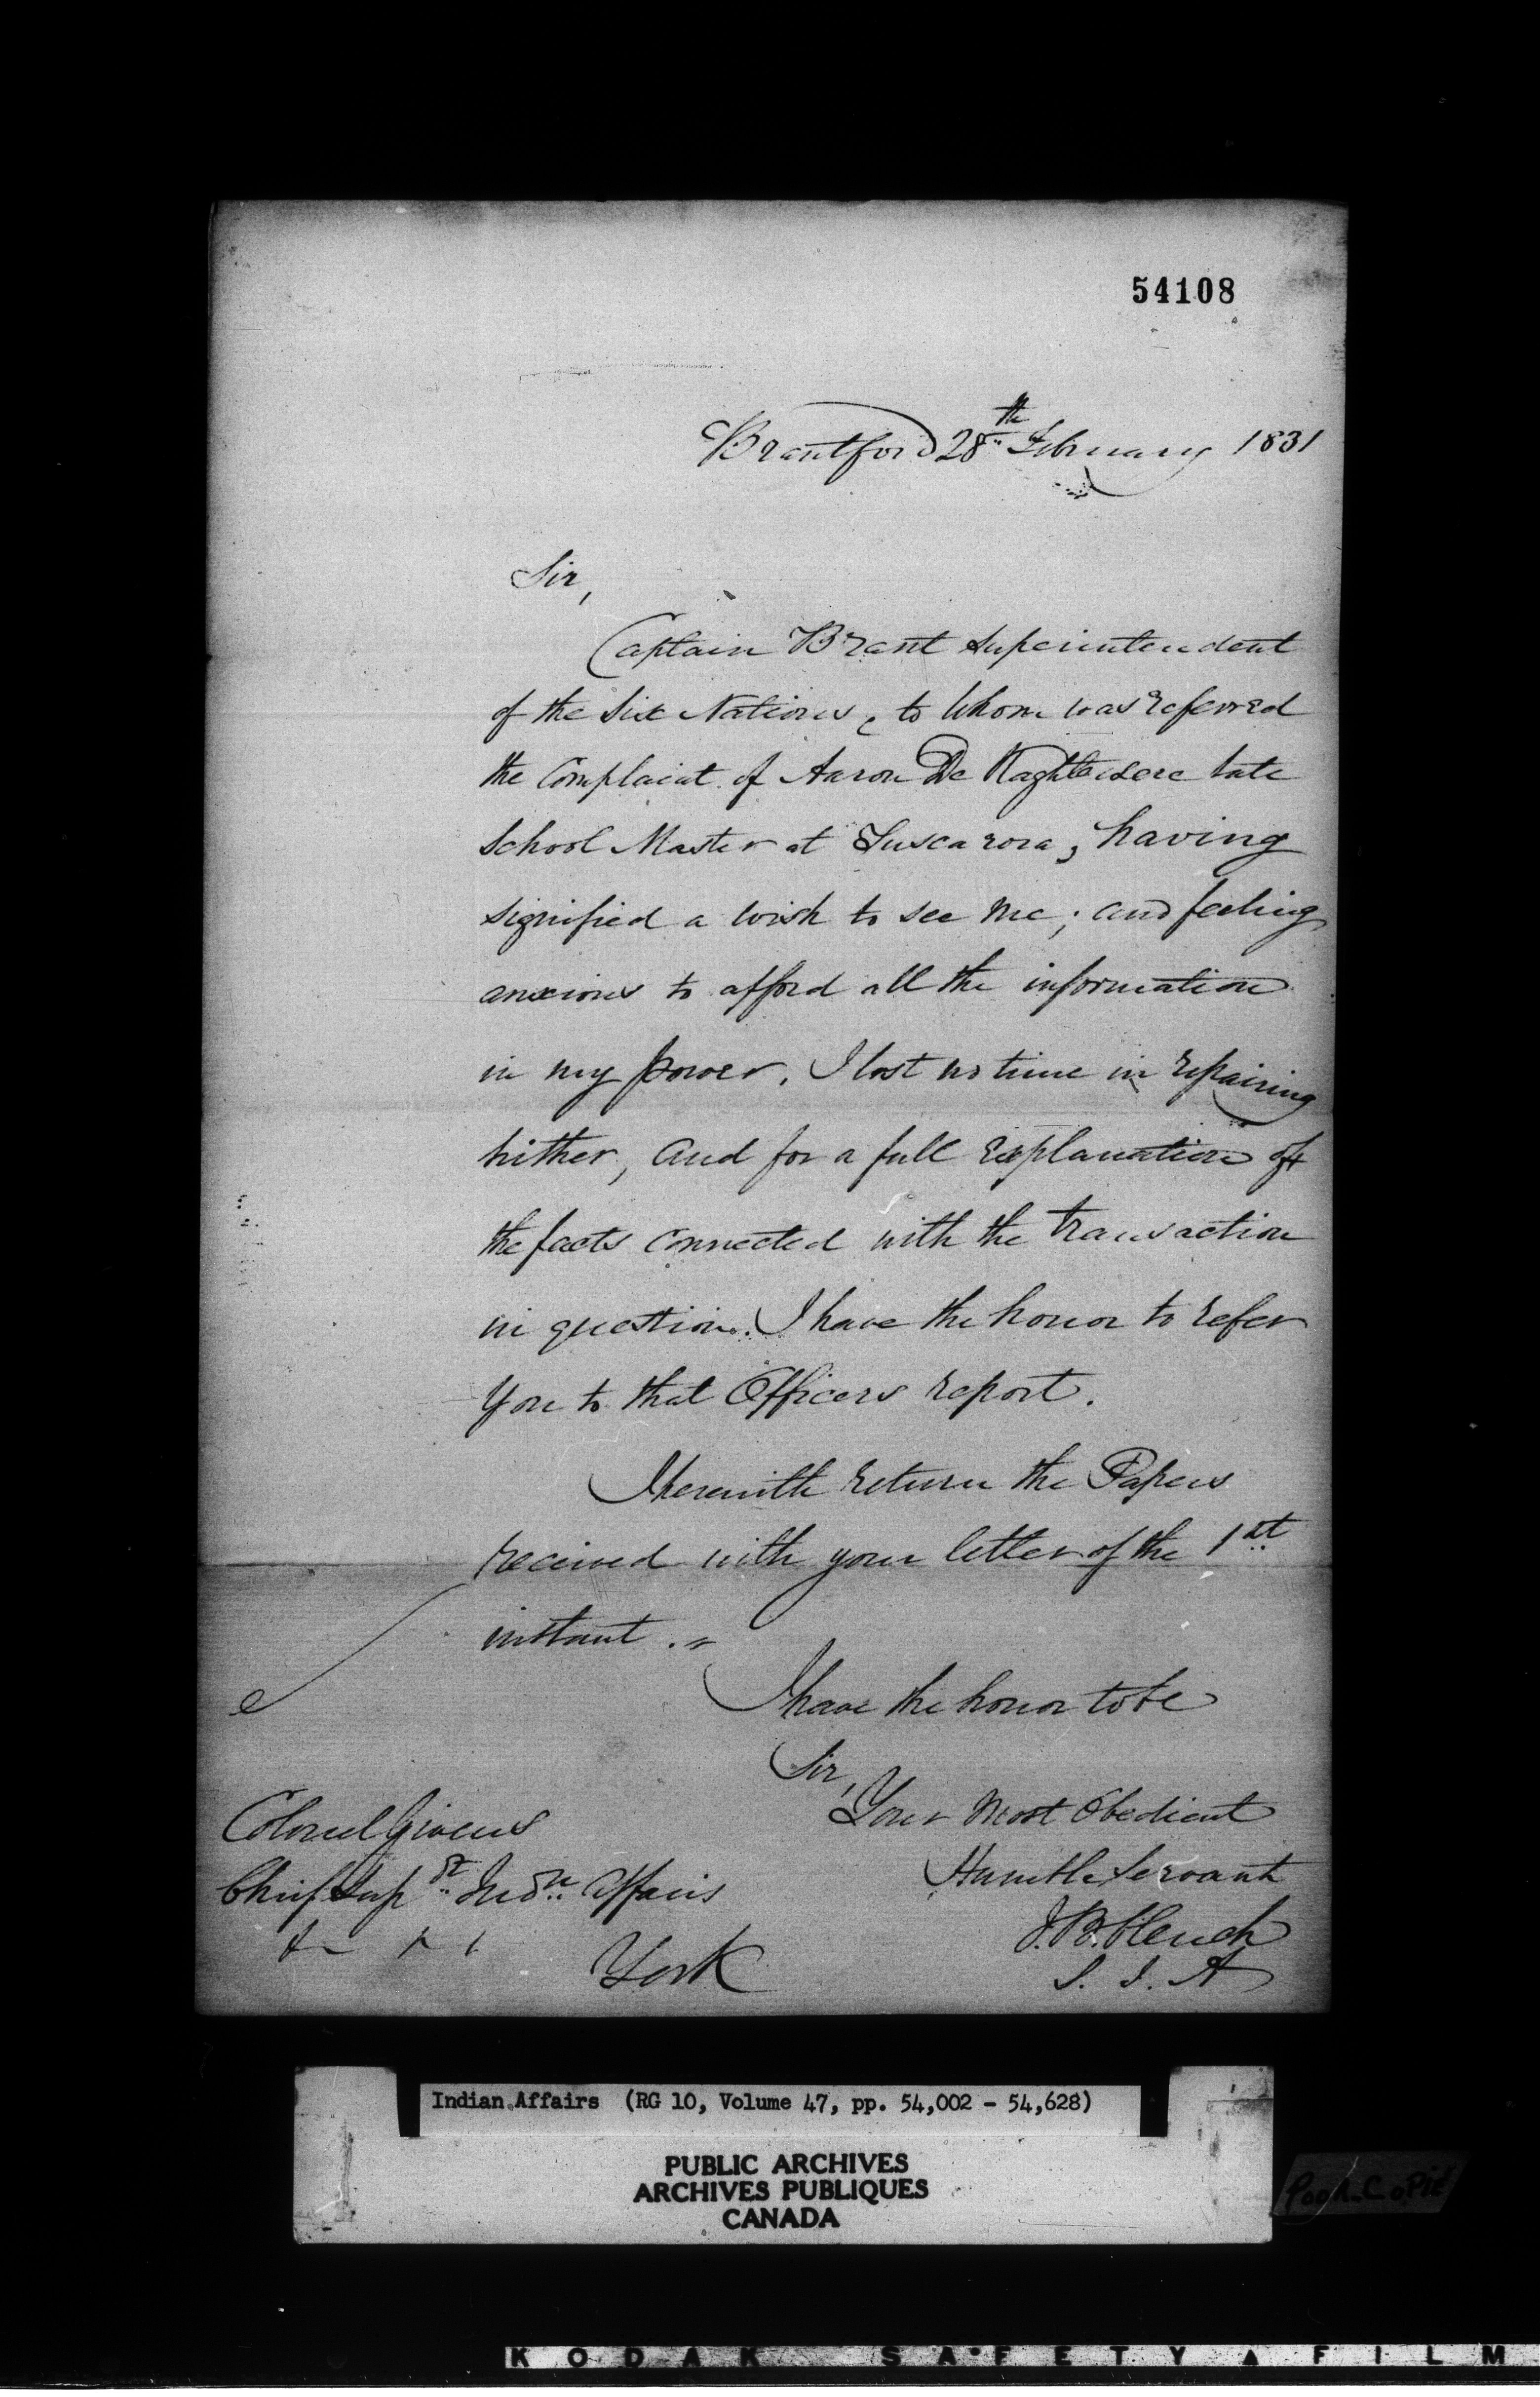 54108
Brantford 28th February 1831
Sir,
Captain Brant Superintendent
of the Six Nations, to Whom was referred
the Complaint of Aaron De late
School Master at Tuscarora, having
signified a wish to see me; and feeling
anxious to afford all the information
in my power, I lost no time in repairing
hither, and for a full explanation of
the facts connected with the transaction
in question. I have the honor to refer
you to that Officers report.
I herewith return the Papers
received with your letter of the 1st
instant.
I have the honor to be
Sir,
Your Most Obedient
Humble Servant
J.B. Clench
S. I. A
Colonel Givens
Chief Supdt Indn Affairs
York
Indian Affairs (RG 10, Volume 47, pp. 54,002 - 54,628)
PUBLIC ARCHIVES
ARCHIVES PUBLIQUES
CANADA
Poor Copie
KODAK SAFETY FILM